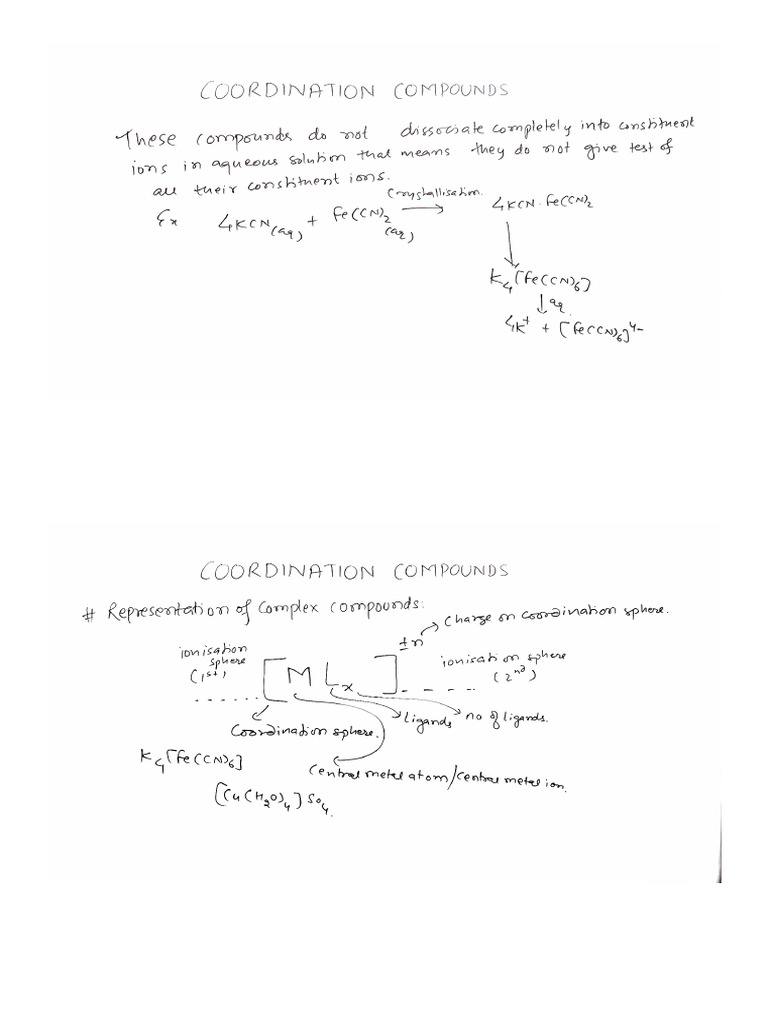 COORDINATION COMPOUNDS
These compounds do not dissociate completely into constituent
ions in aqueous solution that means they do not give test of
all their constituent ions.
Ex 4KCN(aq) + Fe(CN)2(aq) Crystallisation. → 4KCN·Fe(CN)2
↓
K4[Fe(CN)6]
↓ aq.
4K+ + [Fe(CN)6]4-
COORDINATION COMPOUNDS
# Representation of Complex Compounds:
Charge on coordination sphere.
ionisation sphere (1st) [M Lx]±n ionisation sphere (2nd)
Coordination sphere. Ligands no of ligands.
K4[Fe(CN)6] Central metal atom/central metal ion.
[Cu(H2O)4]SO4.